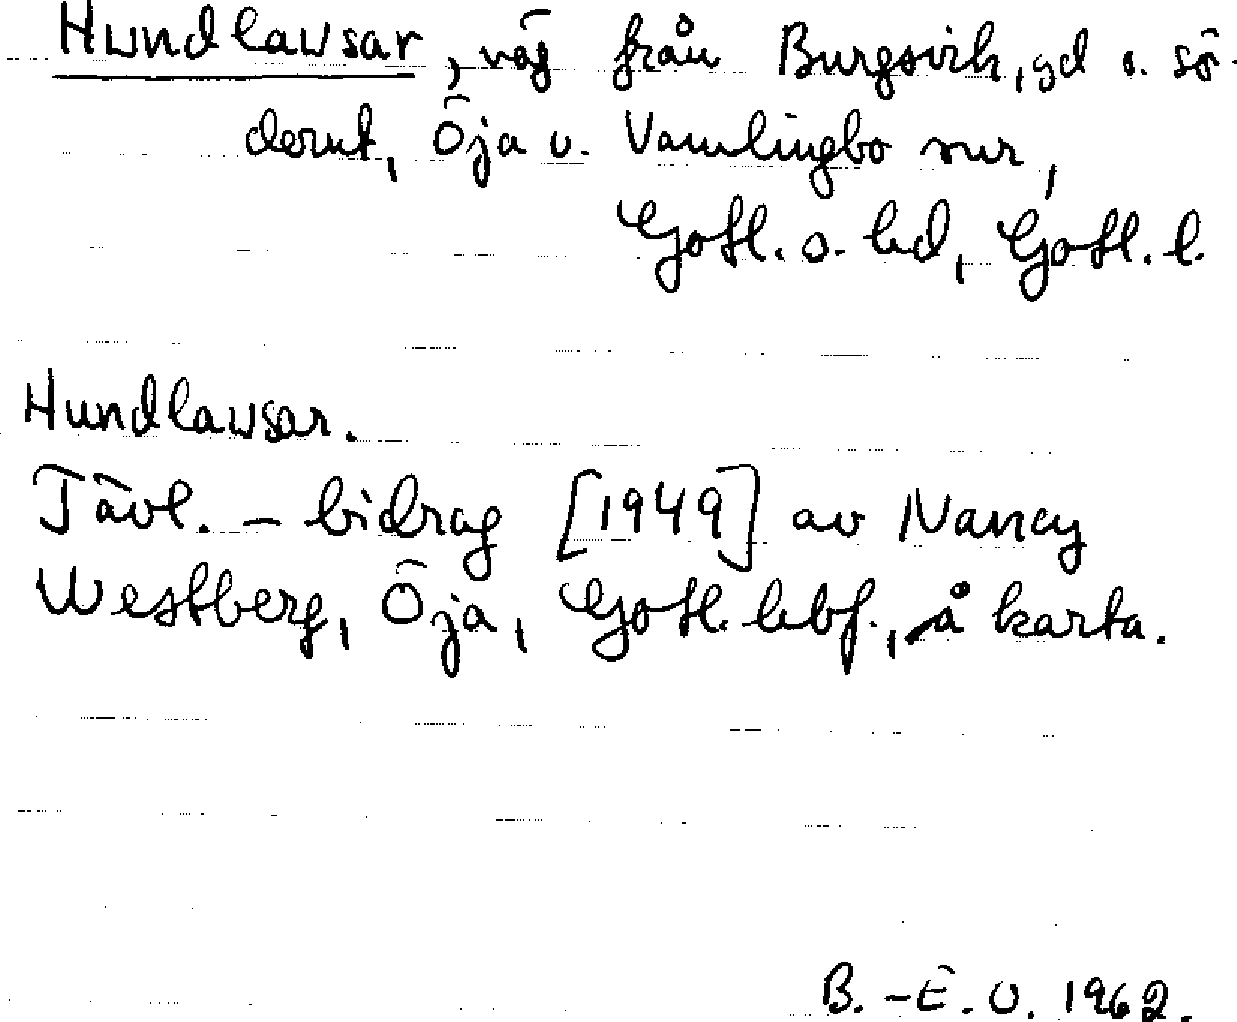 Hundlausar, väg från Burgsvik, gd o. sö-
derut, Öja o. Vamlingbo snr,
Gotl. s. hd, Gotl. l.
Hundlausar.
Tävl.-bidrag [1949] av Nancy
Westberg, Öja, Gotl. hbf., å karta.
B.-E. O. 1962.